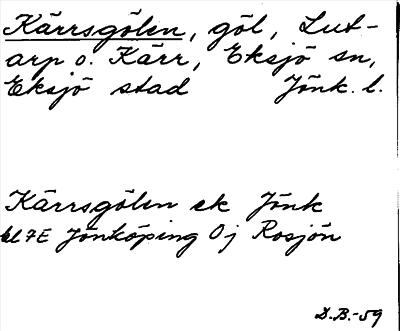 Kärrsgölen, göl, Lut-
arp o. Kärr, Eksjö sn,
Eksjö stad Jönk. l.
Kärrsgölen ek Jönk
bl 7E Jönköping Oj Rosjön
D.B.-59